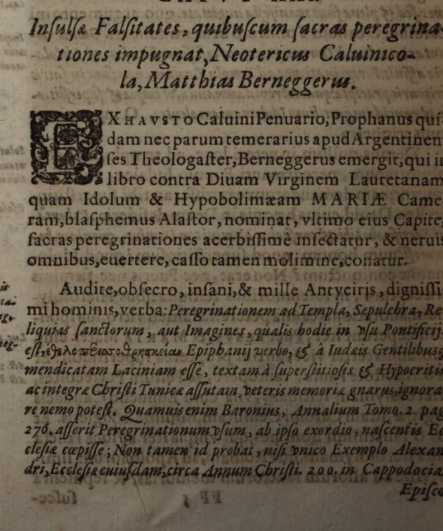 Insulsæ Falsitates, quibuscum sacras peregrina-
tiones impugnat, Neotericus Caluinico-
la, Matthias Berneggerus.
EXHAVSTO Caluini Penuario, Prophanus qui
dam nec parum temerarius apud Argentinen
ses Theologaster, Berneggerus emergit, qui in
libro contra Diuam Virginem Lauretanam
quam Idolum & Hypobolimæam MARIÆ Came
ram, blasphemus Alastor, nominat, vltimo eius Capite
sacras peregrinationes acerbissimè insectatur, & neruis
omnibus, euertere, casso tamen molimine, conatur.
Audite, obsecro, insani, & mille Antyciris, dignissi
mi hominis, verba: Peregrinationem ad Templa, Sepulchra, Re
liquias sanctorum, aut Imagines, qualis hodie in vsu Pontificij
est, Epiphanij verbo, & à Iudæis Gentilibusq
mendicatam Laciniam esse, textam à superstitiosis & Hypocritis
ac integræ Christi Tunicæ assutam, veteris memoriæ gnarus, ignora
re nemo potest. Quamuis enim Baronius, Annalium Tomo. 2. pag
276. asserit Peregrinationum vsum, ab ipso exordio, nascentis Ec
clesiæ cœpisse; Non tamen id probat, nisi vnico Exemplo Alexan
dri, Ecclesiæ cuiusdam, circa Annum Christi. 200. in Cappodocia
Episco